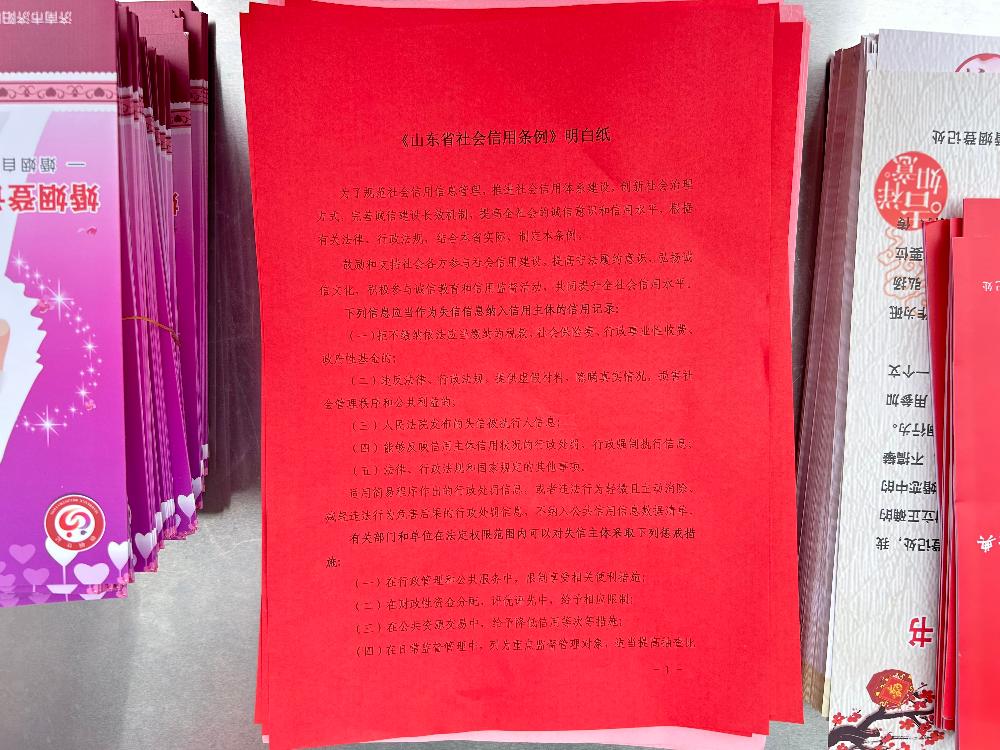 《山东省社会信用条例》明白纸
为了规范社会信用信息管理，推进社会信用体系建设，创新社会治理
方式，完善诚信建设长效机制，提高全社会的诚信意识和信用水平，根据
有关法律、行政法规，结合本省实际，制定本条例。
鼓励和支持社会各方参与社会信用建设，提高守法履约意识，弘扬诚
信文化，积极参与诚信教育和信用监督活动，共同提升全社会信用水平。
下列信息应当作为失信信息纳入信用主体的信用记录：
（一）拒不缴纳依法应当缴纳的税款、社会保险费、行政事业性收费、
政府性基金的；
（二）违反法律、行政法规，提供虚假材料、隐瞒真实情况，损害社
会管理秩序和公共利益的；
（三）人民法院发布的失信被执行人信息；
（四）能够反映信用主体信用状况的行政处罚、行政强制执行信息；
（五）法律、行政法规和国家规定的其他事项。
适用简易程序作出的行政处罚信息，或者违法行为轻微且主动消除、
减轻违法行为危害后果的行政处罚信息，不纳入公共信用信息数据清单。
有关部门和单位在法定权限范围内可以对失信主体采取下列惩戒措
施：
（一）在行政管理和公共服务中，限制享受相关便利措施；
（二）在财政性资金分配、评优评先中，给予相应限制；
（三）在公共资源交易中，给予降低信用等次等措施；
（四）在日常监督管理中，列为重点监督管理对象，适当提高抽查比
- 1 -
济南市济阳
一 婚姻自
婚姻登记
婚姻登记处
吉祥
如意
要位
弘扬
作为班
一个文
用参加
行为。
不搞攀
婚恋中的
立正确的
登记处，我
书
记处
典